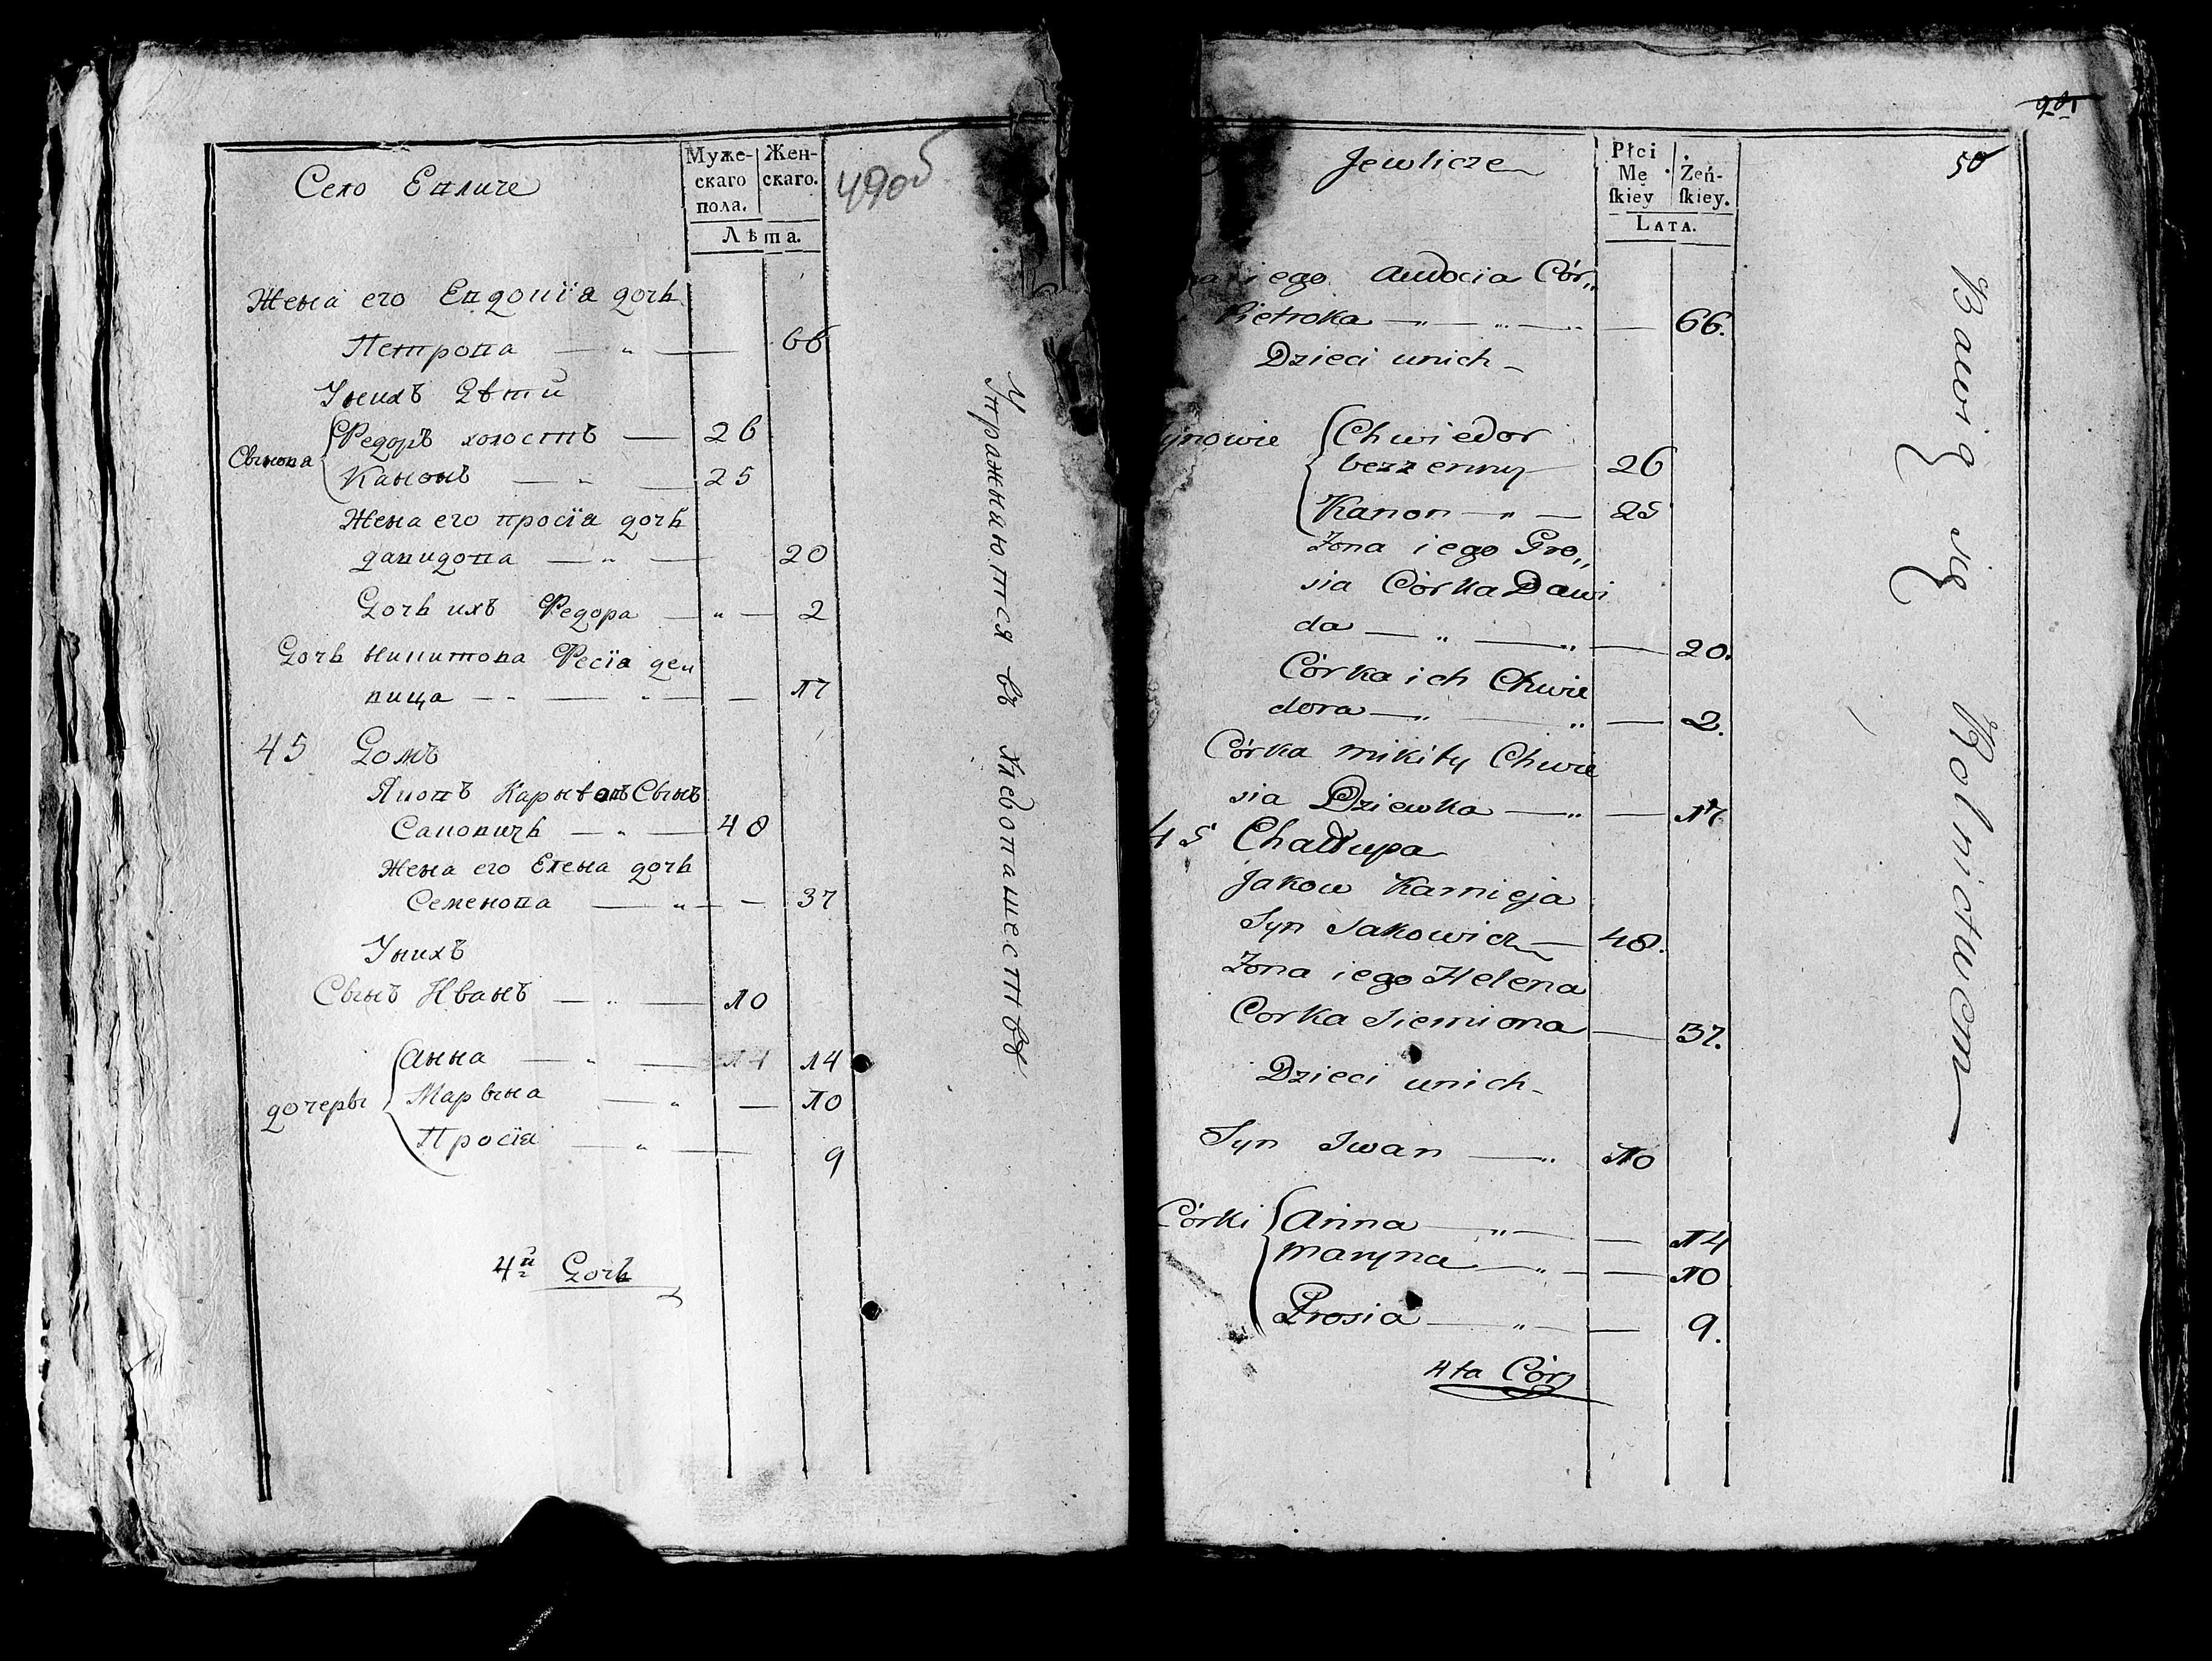 Село Евличе
Муже-
скаго
пола.
Жен-
скаго.
Лѣта.
490б
Жена его Евдокїя дочь
Петрова — " — 66
Унихъ Дѣти
Сынова
Ѳедоръ холостъ — 26
Канонъ — " — 25
Жена его просїя дочь
давидова — " — 20
Дочь ихъ Ѳедора — " — 2
Дочь никитова Ѳесїя дѣ
вица — " — 17
45 Домъ
Яковъ Карнѣевъ Сынъ
Саковичь — " — 48
Жена его Елена дочь
Семенова — " — 37
Унихъ
Сынъ Иванъ — " — 10
дочеры
Анна — " — 14 14
Марына — " — 10
Просїя — " — 9
4я Дочь
Упражняются въ хлебопашествѣ
Jewlicze
Płci
Mę
ſkiey
Żeń-
ſkiey.
LATA.
201
50
iego Awdocia Cór„
Pietroka — " — 66.
Dzieci unich —
ynowie
Chwiedor
bezzenny 26
Kanon — " — 25
Zona iego Pro„
sia Córka Dawi
da — " — 20.
Córka ich Chwie
dora — " — 2.
Córka mikity Chwie
sia Dziewka — " — 17
45 Chałłupa
Jakow Karnieja
Syn Sakowicz — 48.
Zona iego Helena
Corka Siemiona — 37.
Dzieci unich —
Syn Iwan — " 10
Córki
Anna — " — 14
Maryna — " — 10
Prosia — " — 9.
4ta Cór
Bawią się Rolnictwem